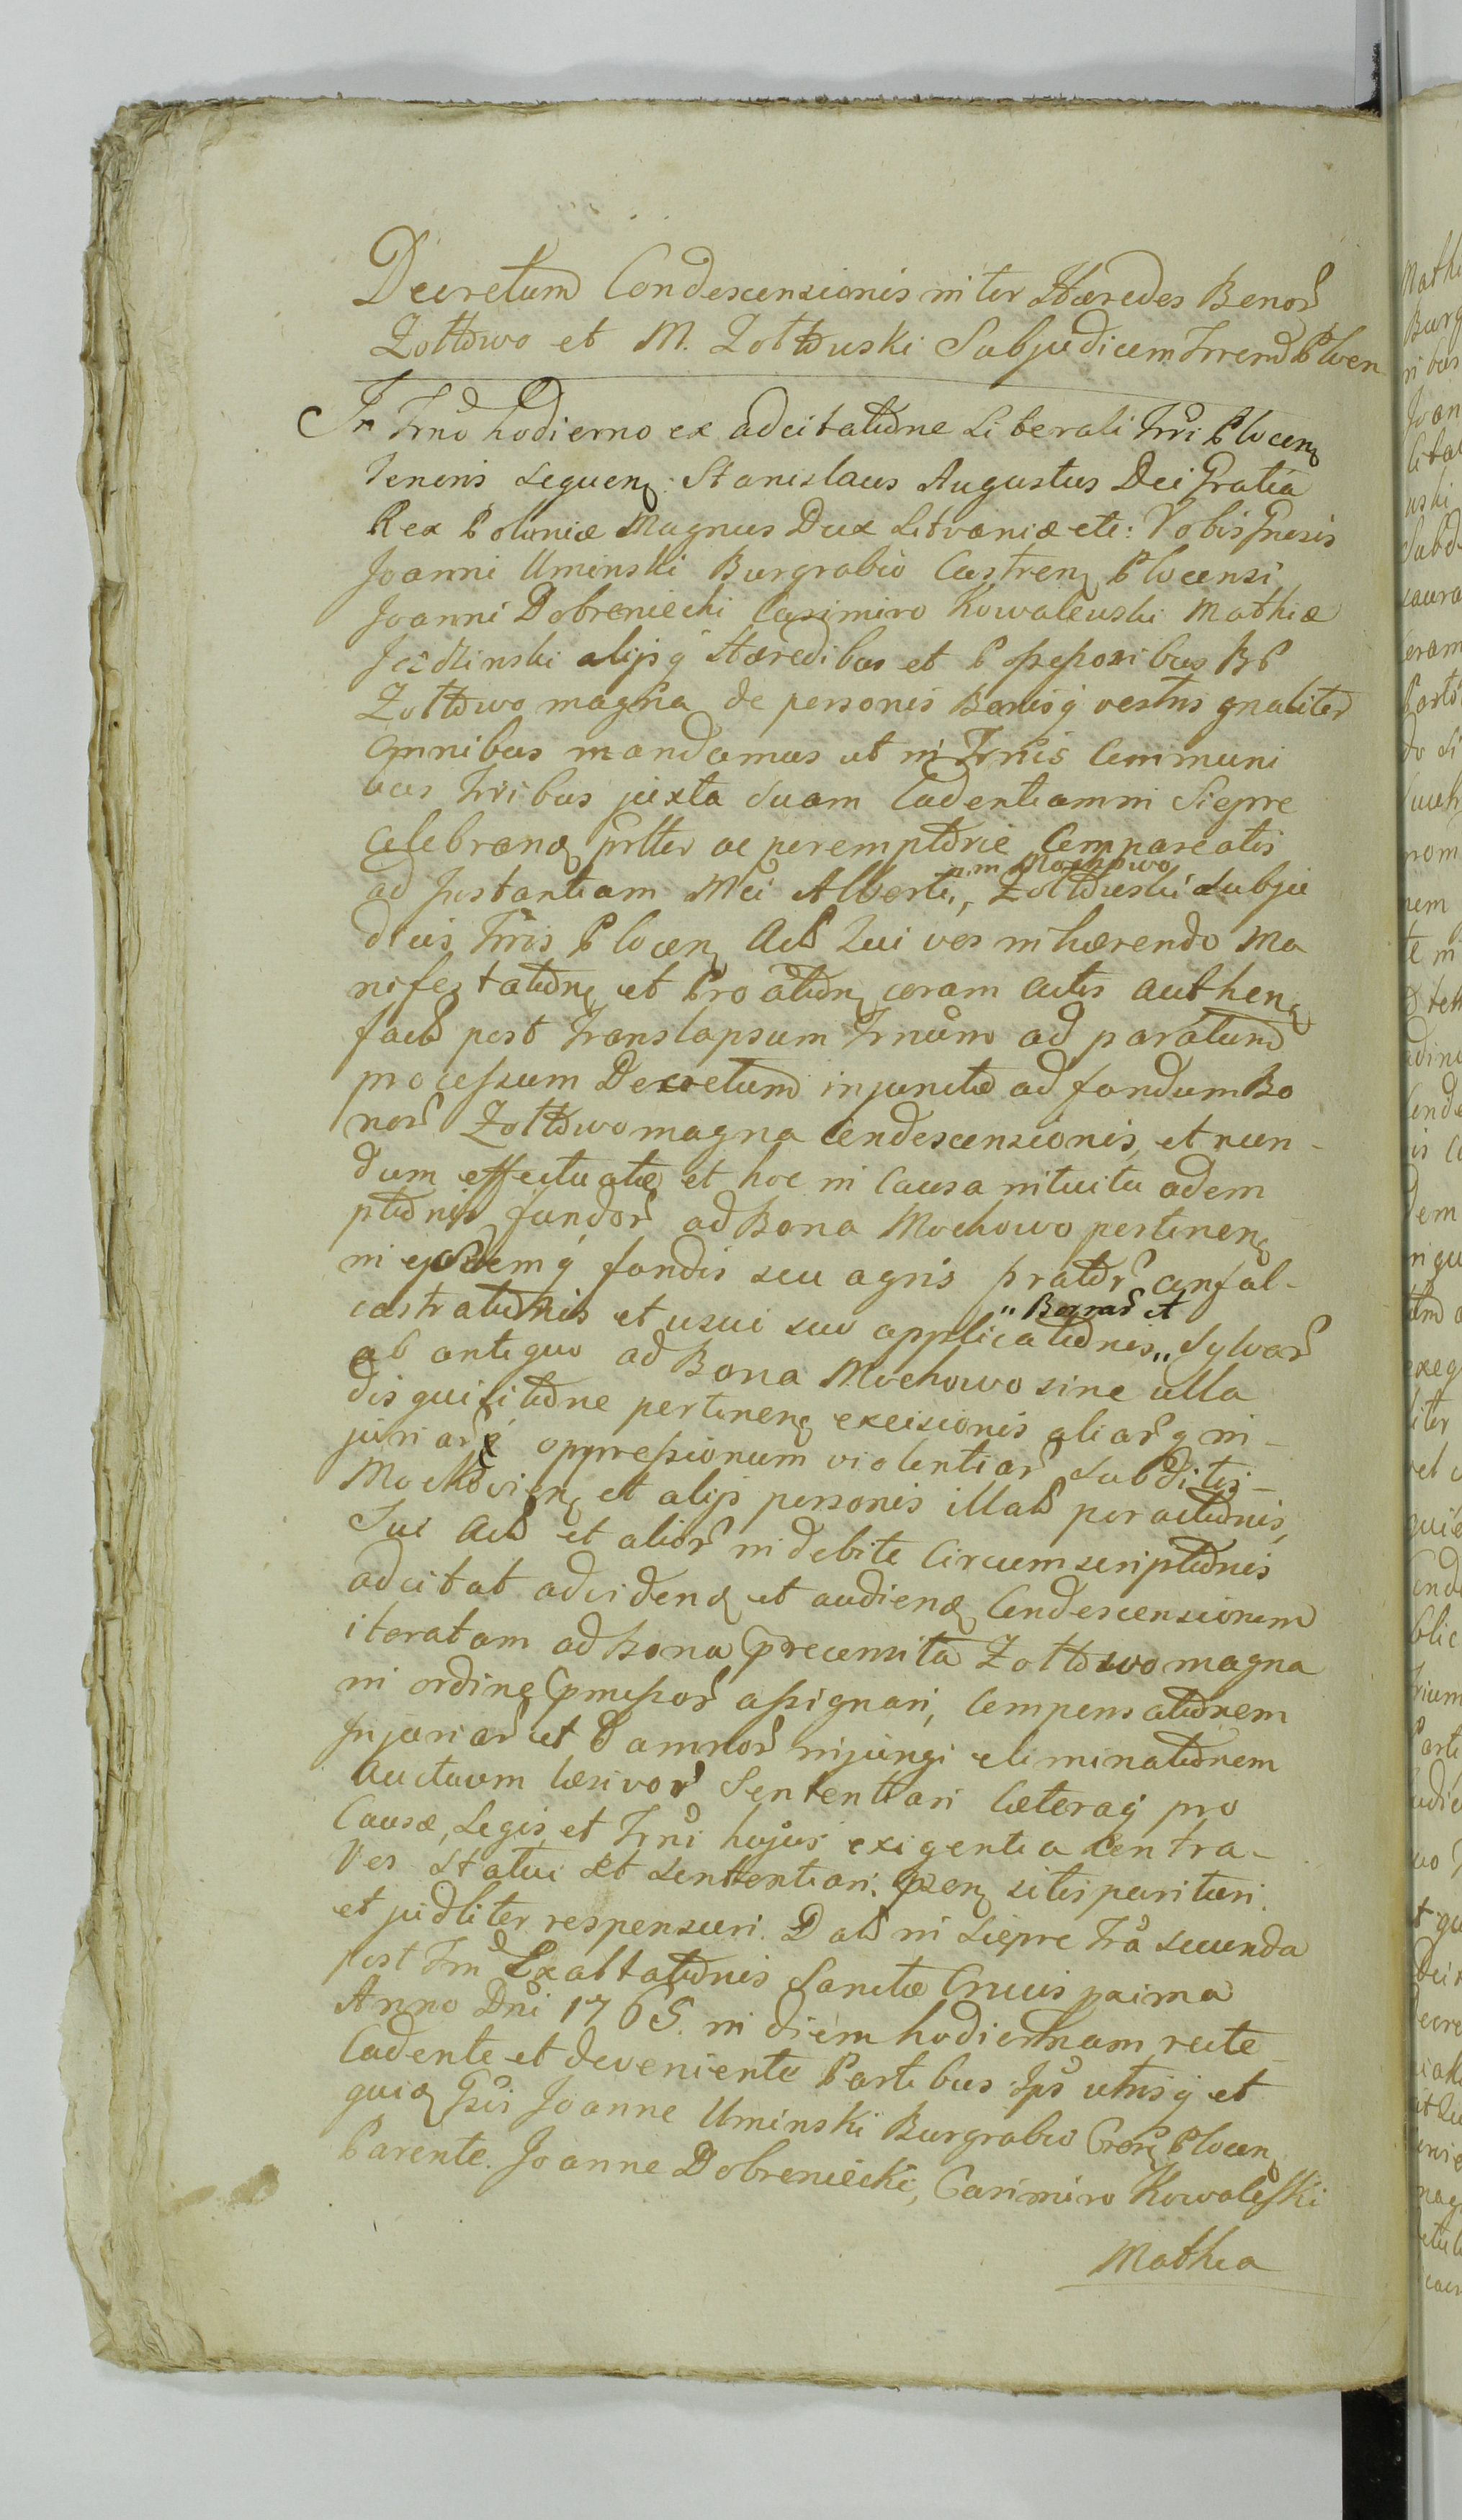 Decretum Condescensionis inter Hæredes Bonor
Żottowo et M. Żottowski Subjudicem Trrem Plocen
In Trno hodierno ex adcitatione Literali Trri Plocen
tenoris sequen: Stanislaus Augustus Dei Gratia
Rex Poloniæ Magnus Dux Litvaniæ etc: Vobis Gnosis
Joanni Uminski Burgrabio Castren Plocensi
Joanni Dobreniecki Casimiro Kowalewski Mathiæ
Jeżdżinski alijsq Hæredibus et Possessoribus BB
Żottowo magna de personis Bonisq vestris gnaliter
omnibus mandamus ut in Trnis Communi
bus Trribus juxta suam Cadentiam in Siepre
celebrand prltter ac peremptorie Compareatis
ad Instantiam Mci Alberti, in Mochowo Żottowski Subju
dicis Trris Plocen Act Qui vos inhærendo Ma
nifestation et Proation coram Actis Authen
fact post translapsum Trnum ad paratum
processum Decretum injunctæ ad fundum Bo
nor Żottowo magna Condescensionis, et non-
dum effectuatæ et hoc in Causa intuitu adem
ptionis fundor ad Bona Mochowo pertinen
in ejsdemq fundis seu agris prator confal-
castrationis et usui suo applicationis „Borrar et„ Sylvar
ab antiquo ad Bona Mochowo sine ulla
disquisitione pertinen excisionis aliarq in-
juriar, oppressionum violentiar Subditis-
Mochovien et alijs personis illat peractionis,
Sui Act et alior indebite Circumscriptionis
adcitat ad vidend et audiend Condescensionem
iteratam ad Bona præcensita Żottowo magna
in ordine præmissor assignari, Compensationem
Injuriar et Damnor injungi eliminationem
Auctuum læsivor Sententiari Cæteraq pro
Causæ, Legis et Trni hujus exigentia contra-
Vos Statui et Sententiari. Psen sitis parituri
et judliter responsuri. Dat in Siepre fra secunda
post Fm Exaltationis Sanctæ Crucis prima
Anno Dni 1765. in diem hodiernam recte
Cadente et deveniente Partibus Ips utrisq et
quid Gsis Joanne Uminski Burgrabio Cren Plocen
Parente. Joanne Dobreniecki, Casimiro Kowalefski
Mathia